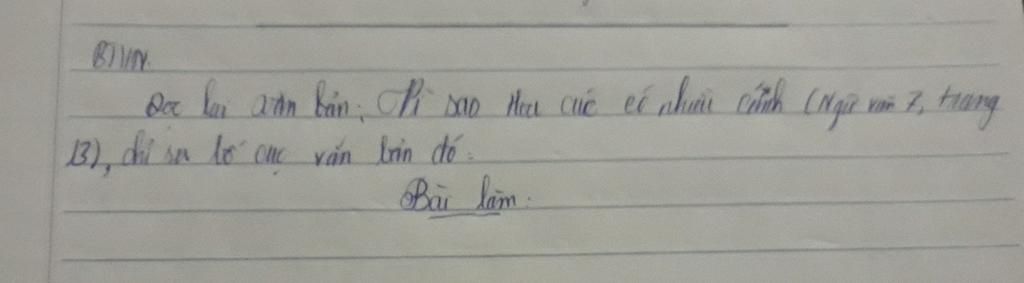 BTVN.
Đọc lại văn bản: Vì sao Hoa cúc có nhiều cánh (Ngữ văn 7, trang
13), chỉ ra bố cục văn bản đó.
Bài làm: